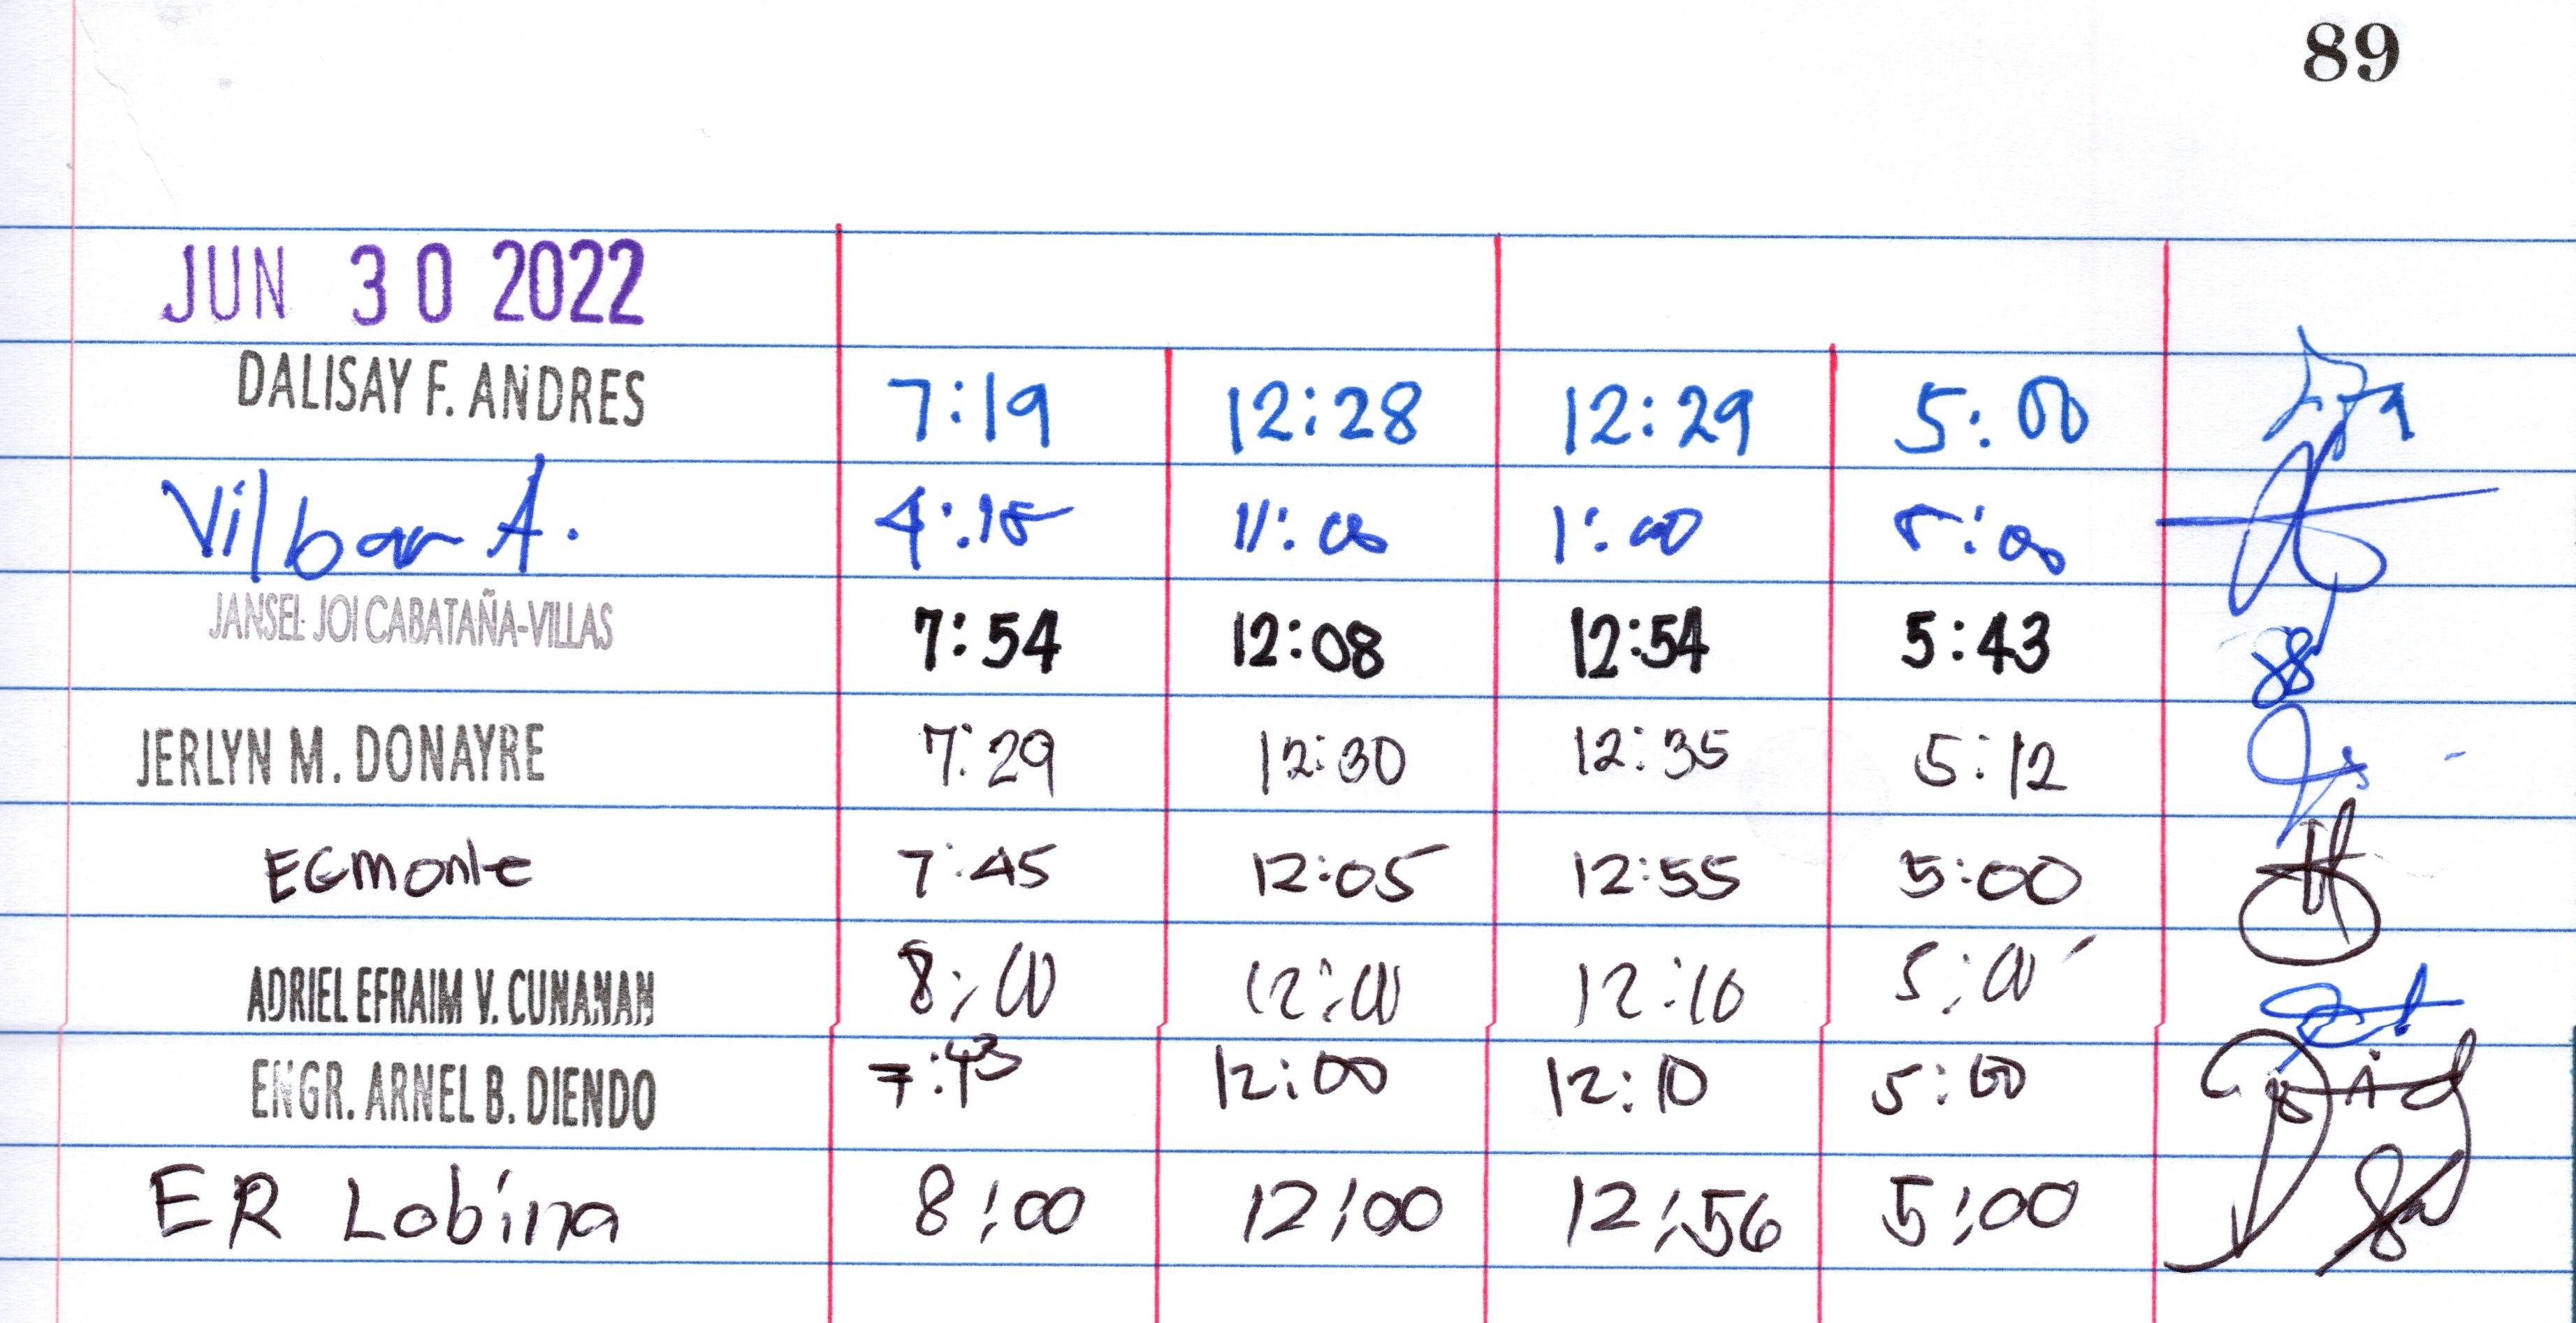 89
JUN 30 2022
DALISAY F. ANDRES 7:19 12:28 12:29 5:00
Vilbar A. 4:15 11:00 1:00 5:00
JANSEL JOI CABATAÑA-VILLAS 7:54 12:08 12:54 5:43
JERLYN M. DONAYRE 7:29 12:30 12:35 5:12
EGmonte 7:45 12:05 12:55 5:00
ADRIEL EFRAIM V. CUNANAN 8:00 12:00 12:10 5:00
ENGR. ARNEL B. DIENDO 7:43 12:00 12:10 5:00
ER Lobina 8:00 12:00 12:56 5:00